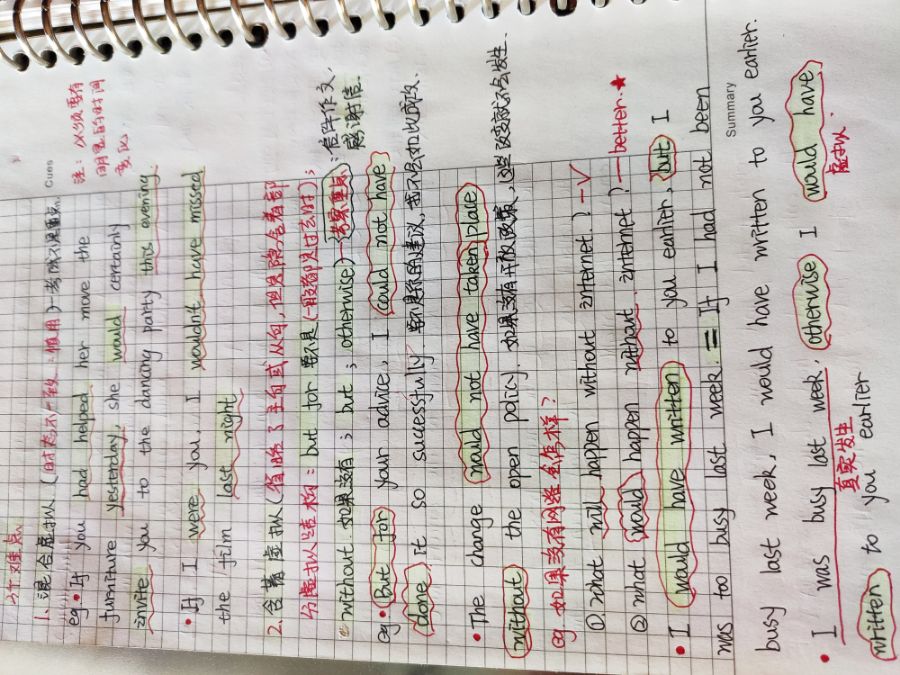 六、难点
1、混合虚拟(时态不一致、慎用)—考试不是重点
Cues
注:必须要有
明显的时间
变化
eg • If you had helped her move the
furniture yesterday, she would certainly
invite you to the dancing party this evening
• If I were you, I wouldn't have missed
the film last night
2、含蓄虚拟(省略了主句或从句,但是隐含着部
分虚拟结构:but for 要不是(一般都是过去时);
without 如果没有;but;otherwise)—考察重点:信件作文,
感谢信
eg • But for your advice, I could not have
done it so successfully 要不是你的建议,我不会如此成功.
• The change would not have taken place
without the open policy. 如果没有开放政策,这些改变就不会发生.
eg. 如果没有网络会怎样?
① what will happen without internet?—√
② what would happen without internet?—better.★
• I would have written to you earlier, but I
was too busy last week. = If I had not been
Summary
busy last week, I would have written to you earlier.
• I was busy last week, otherwise I would have
真实发生 虚拟.
written to you earlier